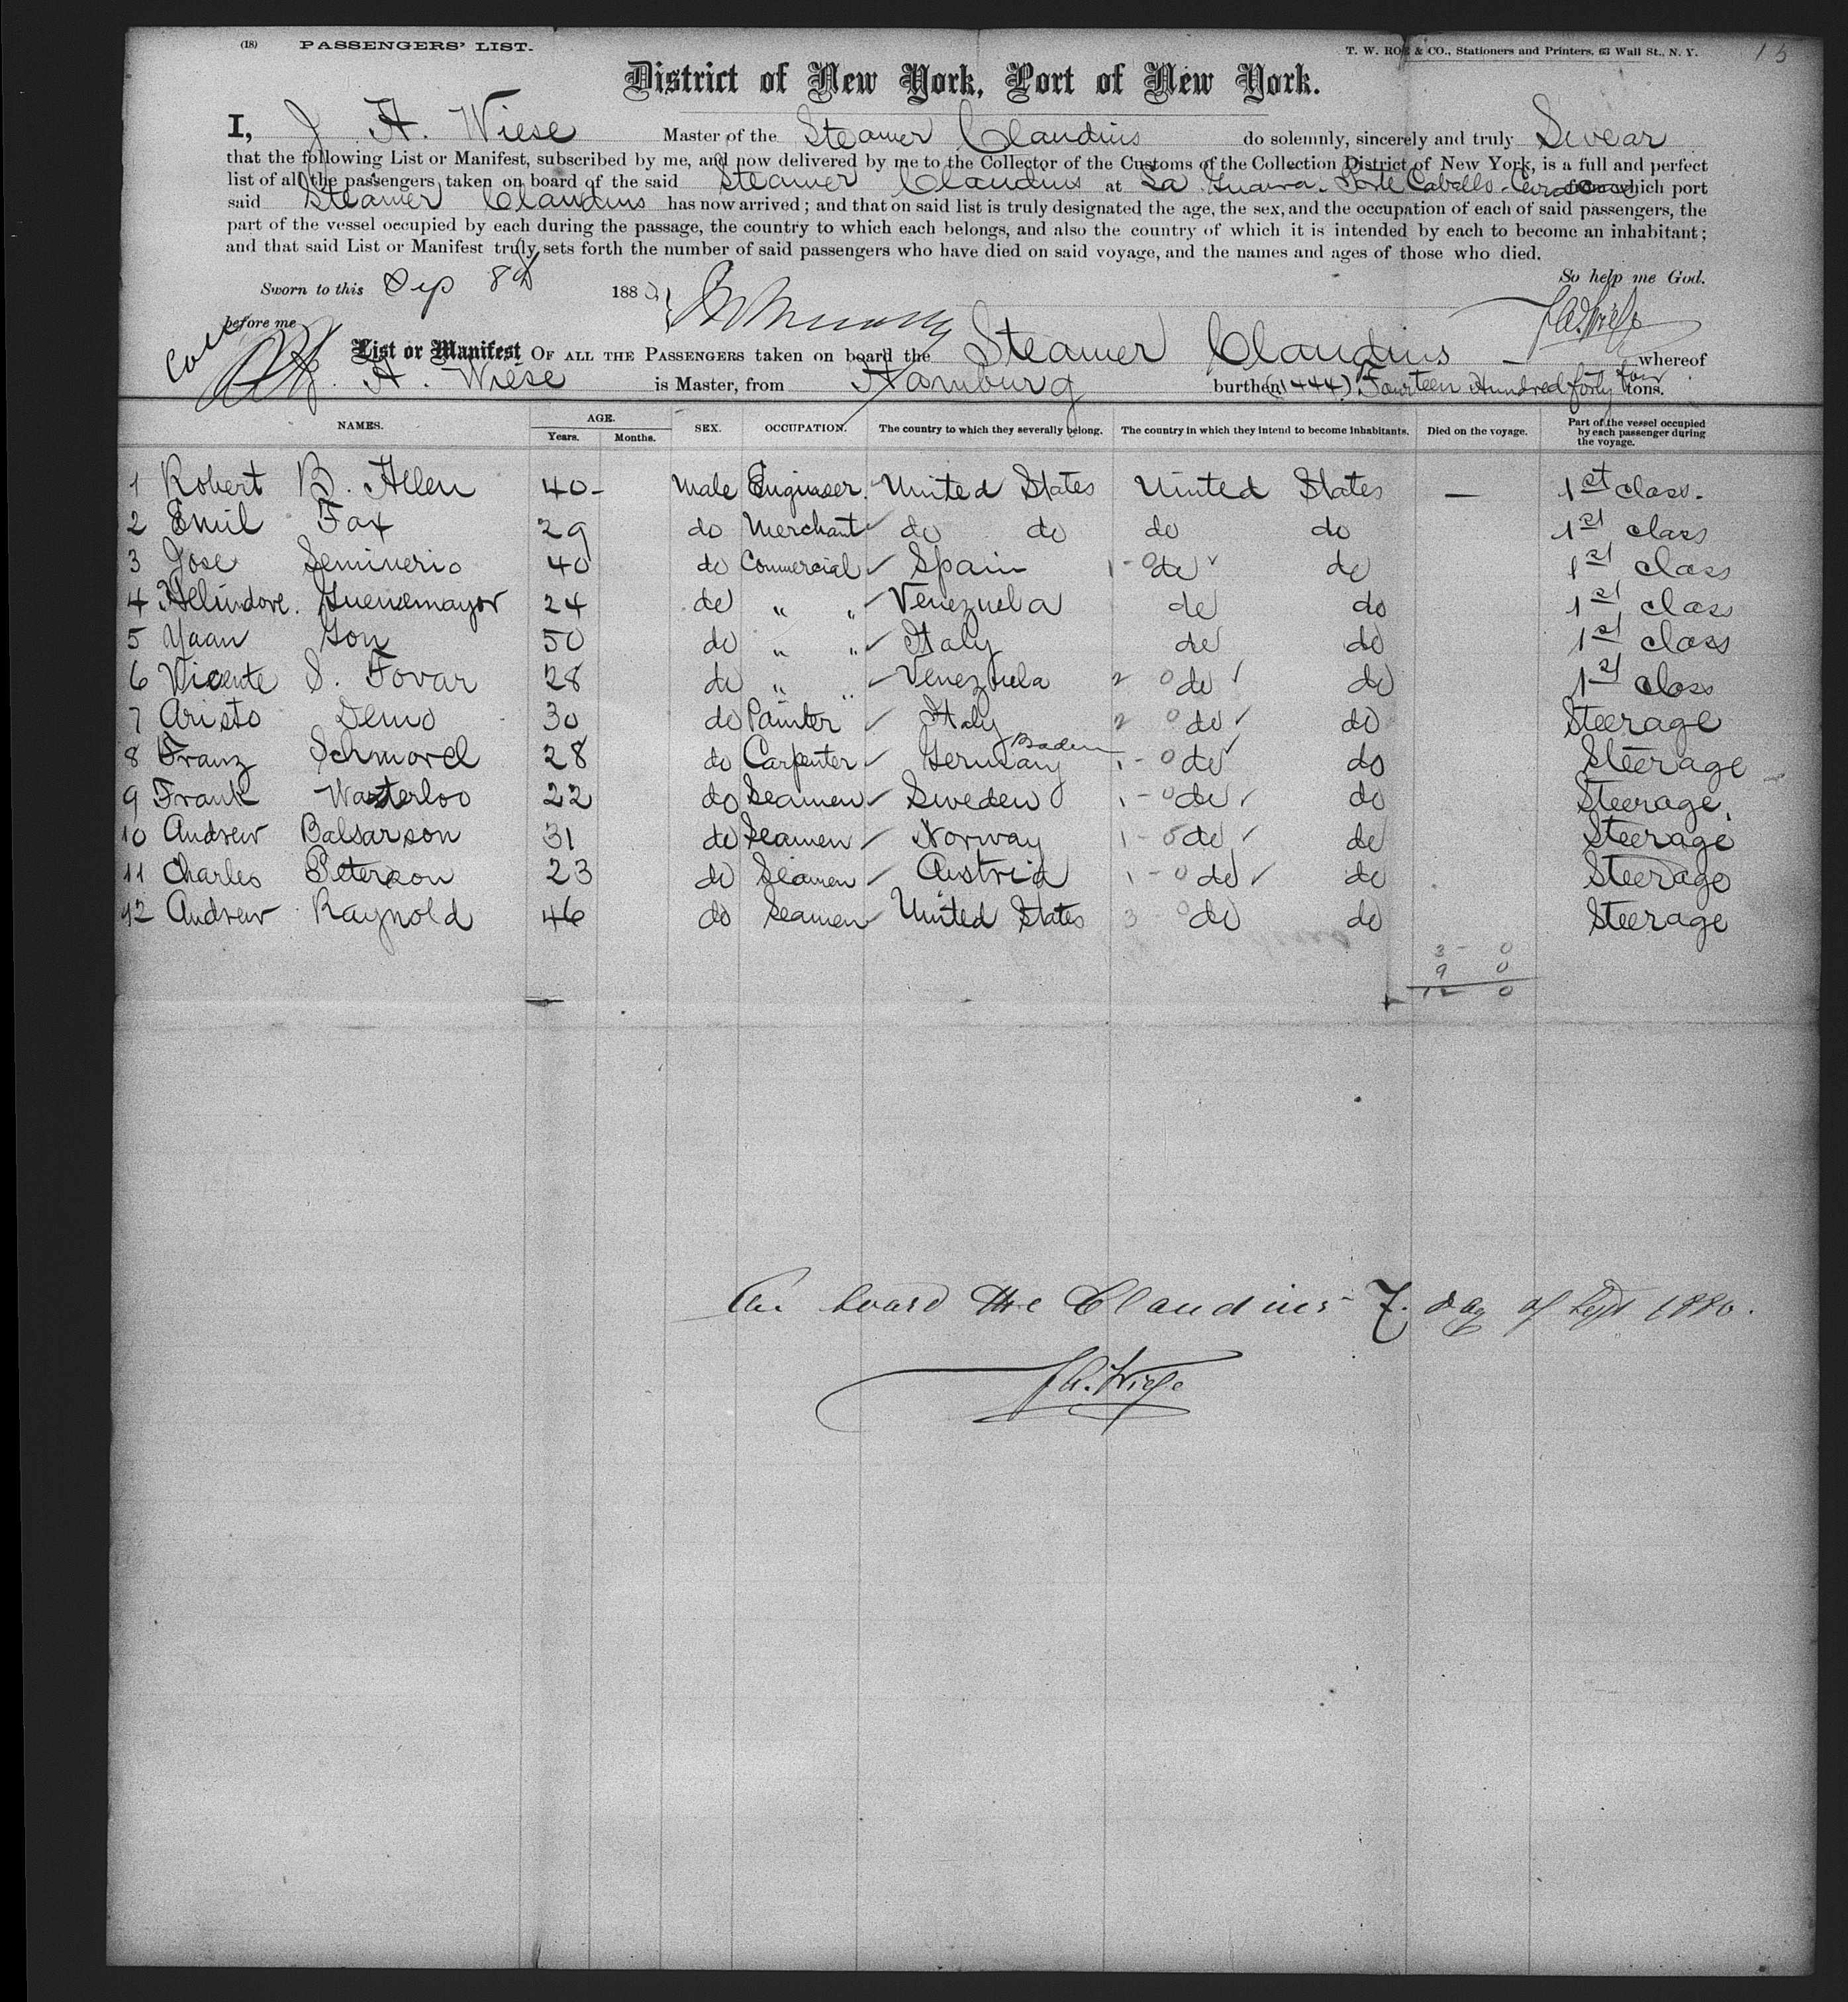 (18) PASSENGERS' LIST. T. W. ROE & CO., Stationers and Printers, 63 Wall St., N. Y. 13
District of New York, Port of New York.
I, J. H. Wiese Master of the Steamer Claudius do solemnly, sincerely and truly Swear
that the following List or Manifest, subscribed by me, and now delivered by me to the Collector of the Customs of the Collection District of New York, is a full and perfect
list of all the passengers taken on board of the said Steamer Claudius at La Guaira - Porte Cabello - which port
said Steamer Claudius has now arrived; and that on said list is truly designated the age, the sex, and the occupation of each of said passengers, the
part of the vessel occupied by each during the passage, the country to which each belongs, and also the country of which it is intended by each to become an inhabitant;
and that said List or Manifest truly sets forth the number of said passengers who have died on said voyage, and the names and ages of those who died.
So help me God.
Sworn to this Sep 8th 1880
before me
List or Manifest OF ALL THE PASSENGERS taken on board the Steamer Claudius whereof
H. Wiese is Master, from Hamburg burthen (1444) Fourteen Hundred forty four tons.
NAMES. AGE. Years. Months. SEX. OCCUPATION. The country to which they severally belong. The country in which they intend to become inhabitants. Died on the voyage. Part of the vessel occupied by each passenger during the voyage.
1 Robert B. Allen 40 - Male Engineer United States United States — 1st class.
2 Emil Fax 29 do Merchant do do do do 1st class
3 Jose Seminerio 40 do Commercial Spain 1-0 do do 1st class
4 24 do " " Venezuela do do 1st class
5 Yaan Gon 50 do " " Italy do do 1st class
6 Vicente S. Tovar 28 do " " Venezuela 2 0 do do 1st class
7 Aristo Demo 30 do Painter Italy 2 0 do do Steerage
8 Franz Schmorel 28 do Carpenter Germany Baden 1-0 do do Steerage
9 Frank Wasterloo 22 do Seamen Sweden 1-0 do do Steerage.
10 Andrew Balsarson 31 do Seamen Norway 1-0 do do Steerage
11 Charles Peterson 23 do Seamen Austria 1-0 do do Steerage
12 Andrew Raynold 46 do Seamen United States 3 0 do do Steerage
3 - 0
9 0
12 0
On board the Claudius 7. day of Sept 1880.
J. H. Wiese